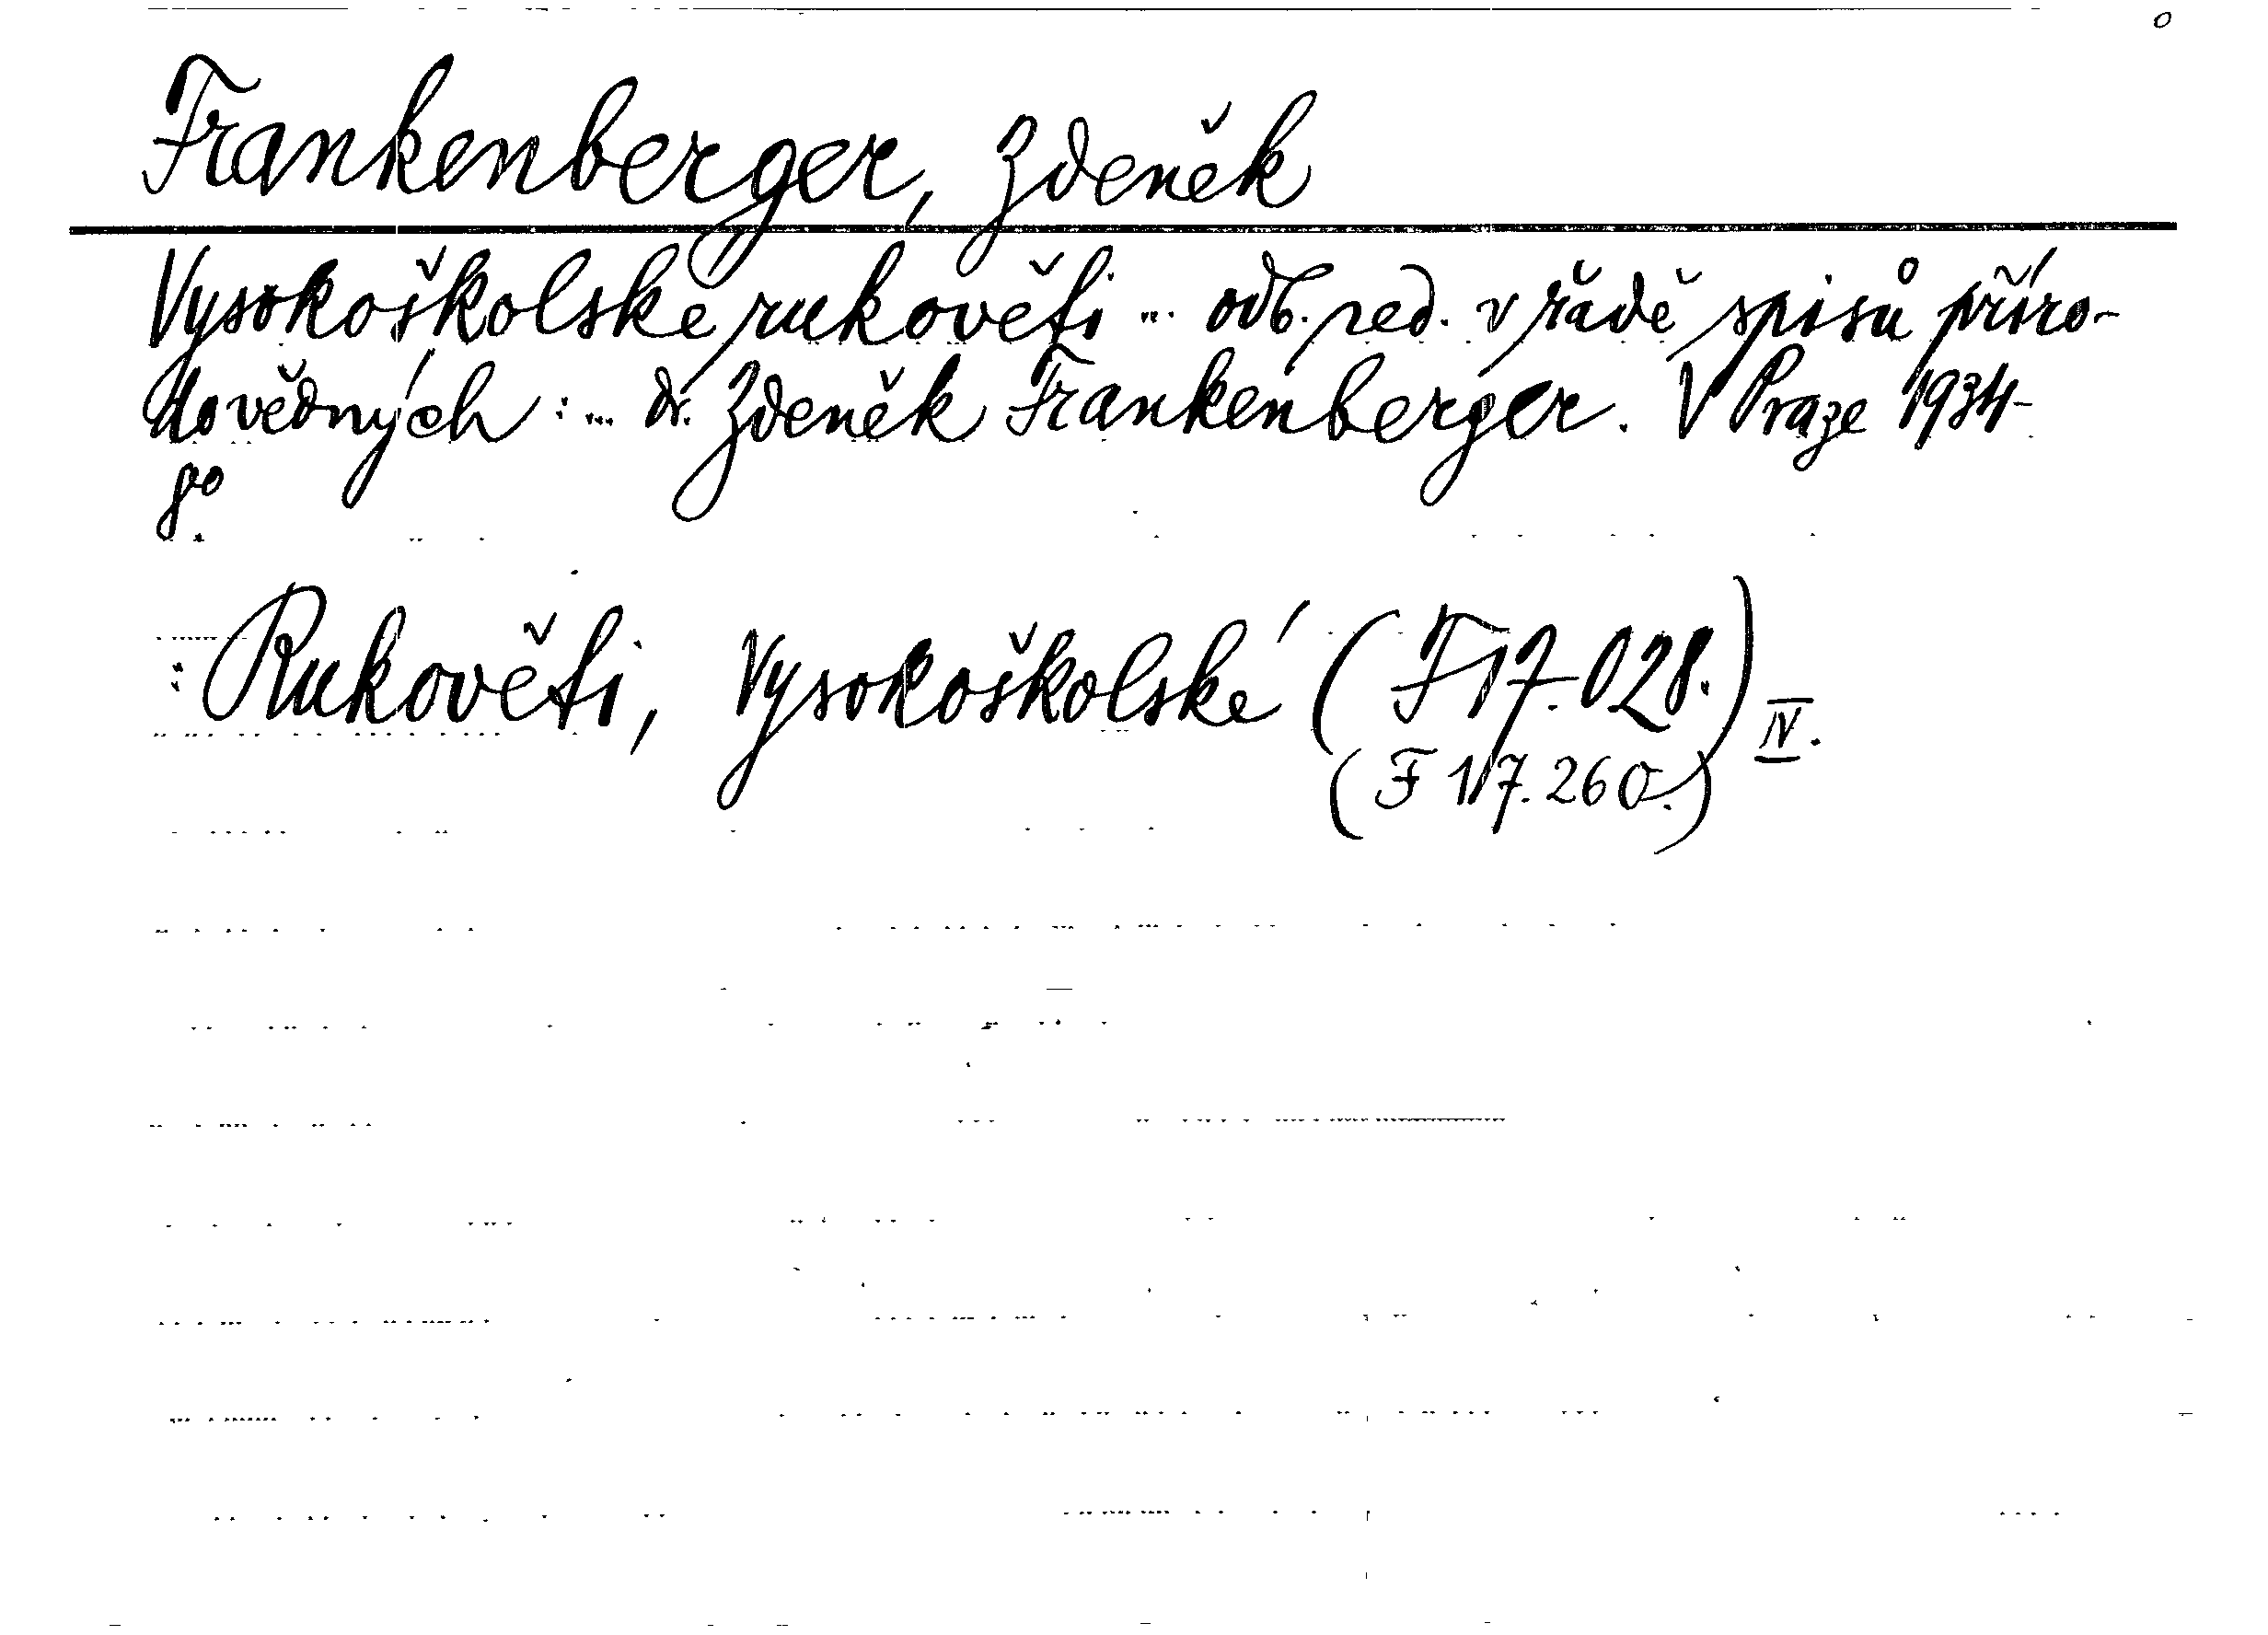 Frankenberger, Zdeněk
Vysokoškolské rukověti ... odb. red. v řadě spisů příro-
dovědných : ... dr. Zdeněk Frankenberger. V Praze 1934-
8°
: Rukověti, Vysokoškolské (F 17.028.) IV.
(F 17.260.)